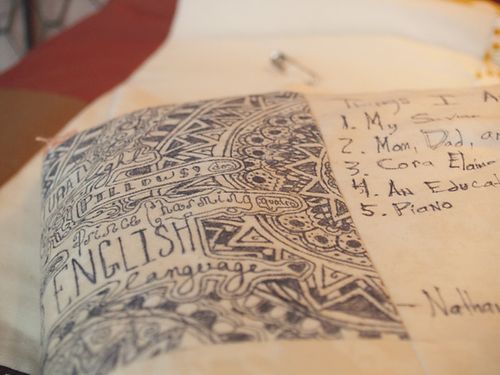 Things I A
1. My Savior
2. Mom, Dad, an
3. Cora Elaine
4. An Educat
5. Piano
— Nathan
Pillows,
Prince Charming
ENGLISH
language